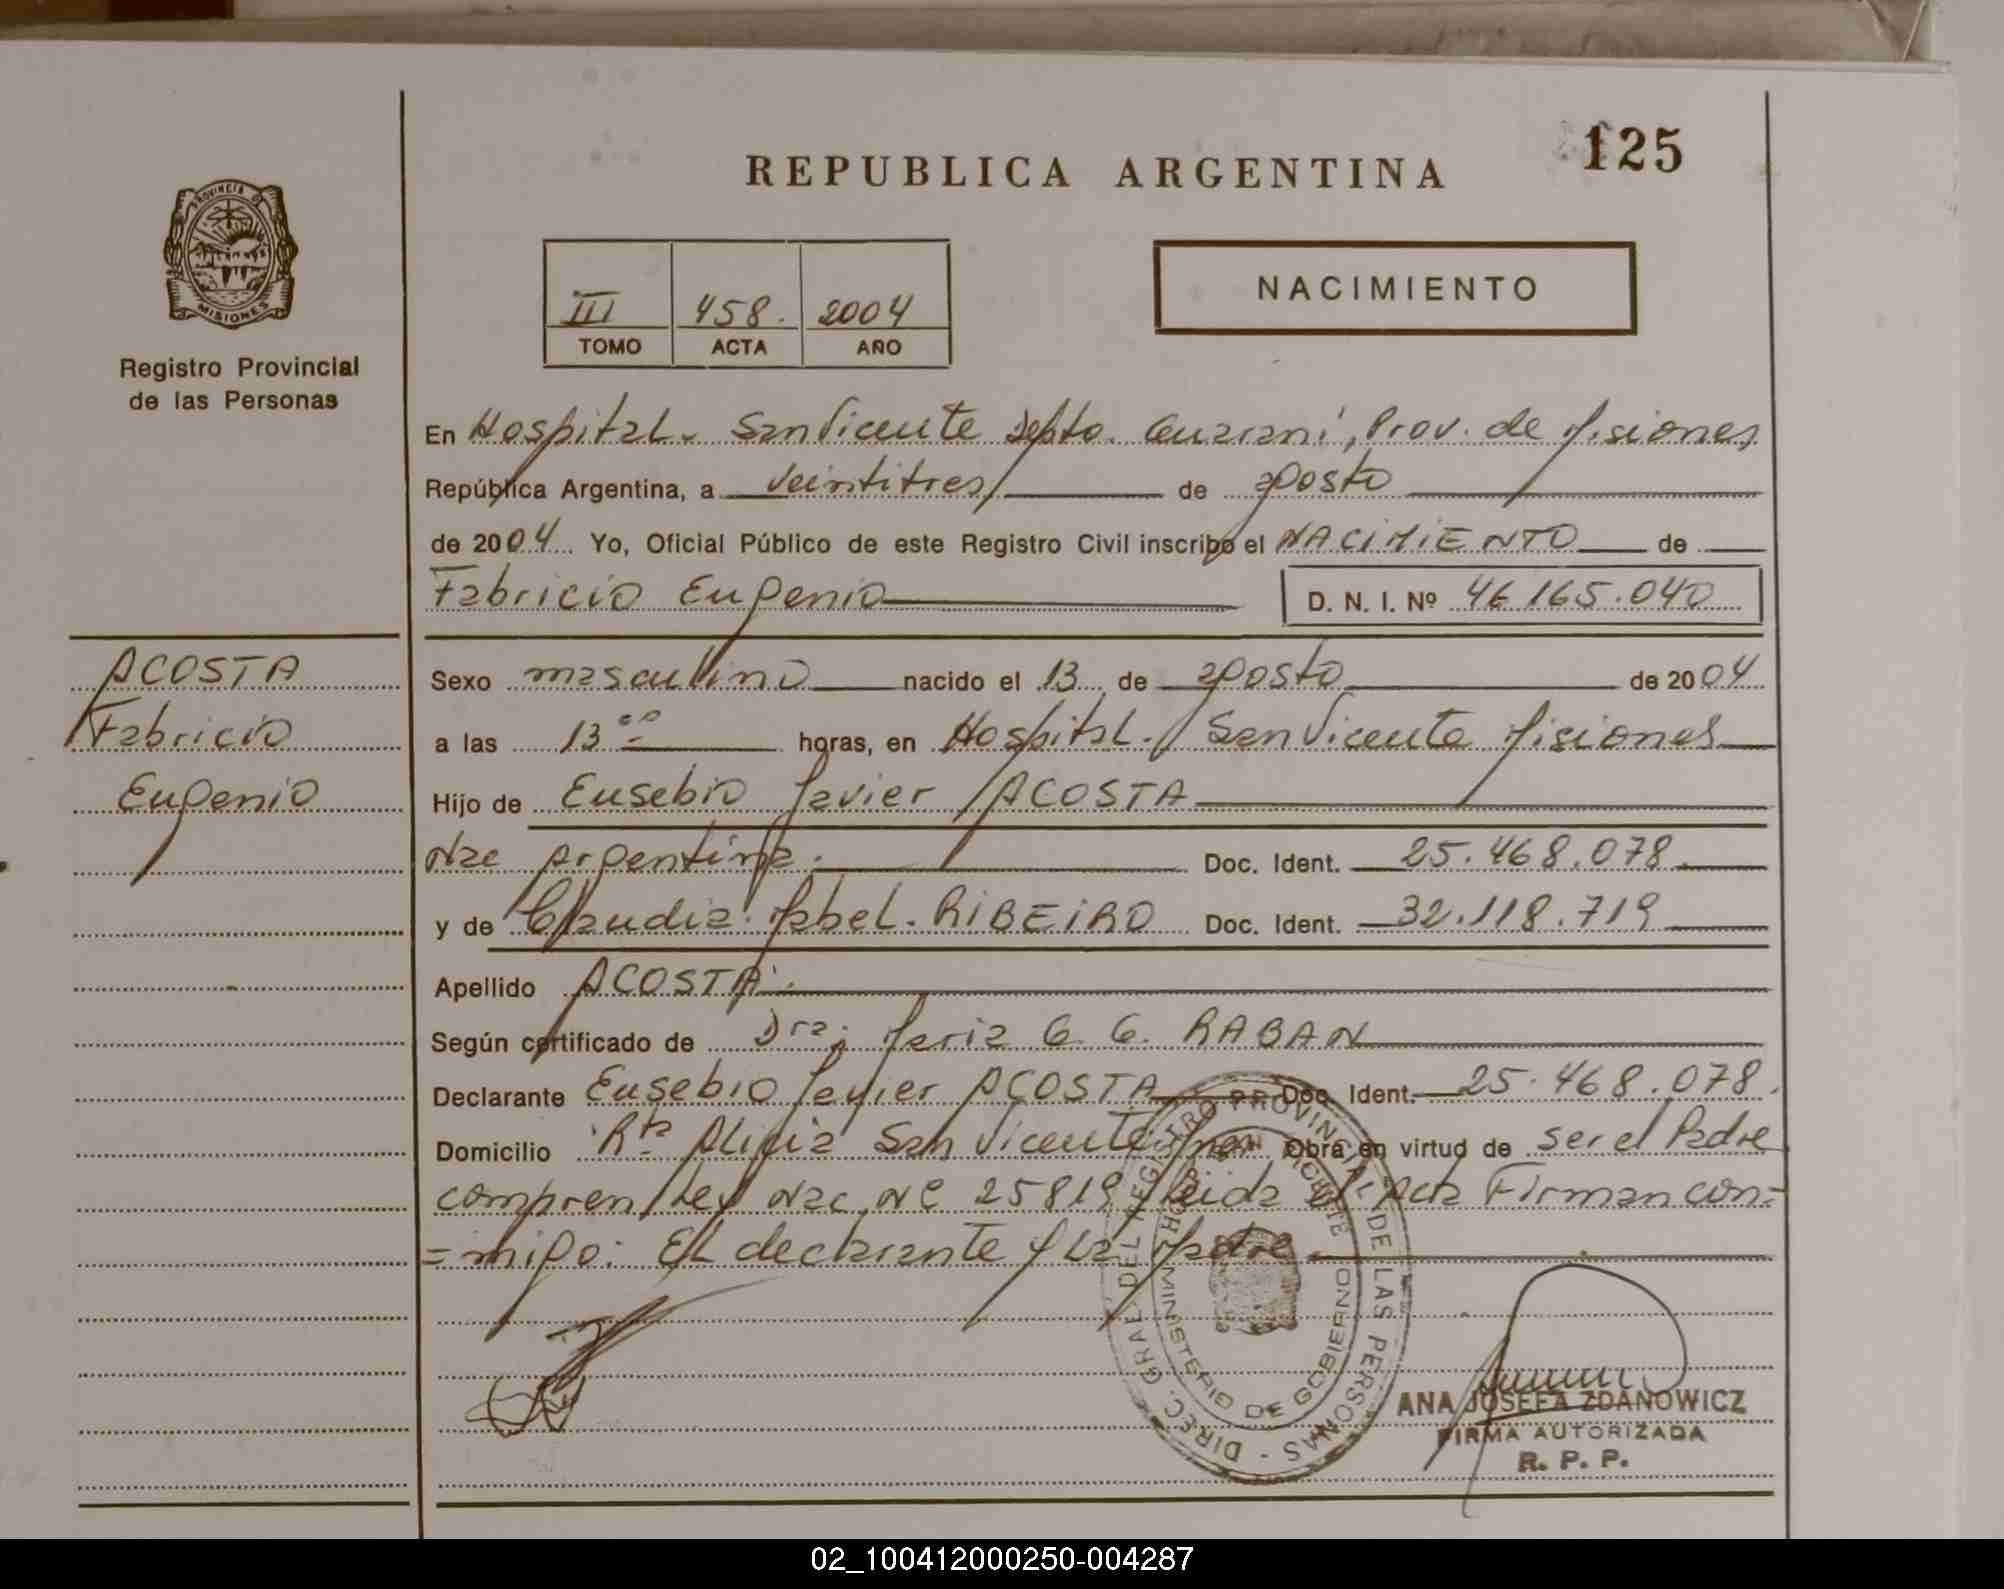 125
REPUBLICA ARGENTINA
PROVINCIA DE
MISIONES
Registro Provincial
de las Personas
NACIMIENTO
III 458. 2004
TOMO ACTA AÑO
En Hospital. San Vicente Depto. Guarani, Prov. de Misiones
República Argentina, a veintitres de agosto
de 2004 Yo, Oficial Público de este Registro Civil inscribo el NACIMIENTO de
Fabricio Eugenio D. N. I. Nº 46 165.040
ACOSTA
Fabricio
Eugenio
Sexo masculino nacido el 13 de agosto de 2004
a las 13 horas, en Hospital. San Vicente Misiones
Hijo de Eusebio Javier ACOSTA
Nac Argentina. Doc. Ident. 25.468.078
y de Claudia Mabel. RIBEIRO Doc. Ident. 32.118.719
Apellido ACOSTA.
Según certificado de Dra. Maria G. G. RABAN
Declarante Eusebio Javier ACOSTA Doc Ident. 25.468.078.
Domicilio Rta Alicia San Vicente Mnes Obra en virtud de ser el Padre
compren Ley Nac Nº 25819 Leida el Acta Firman con=
=migo: El declarante y La Madre
DIREC. GRAL. DEL REGISTRO PROVINCIAL DE LAS PERSONAS
MINISTERIO DE GOBIERNO
ANA JOSEFA ZDANOWICZ
FIRMA AUTORIZADA
R. P. P.
02_100412000250-004287